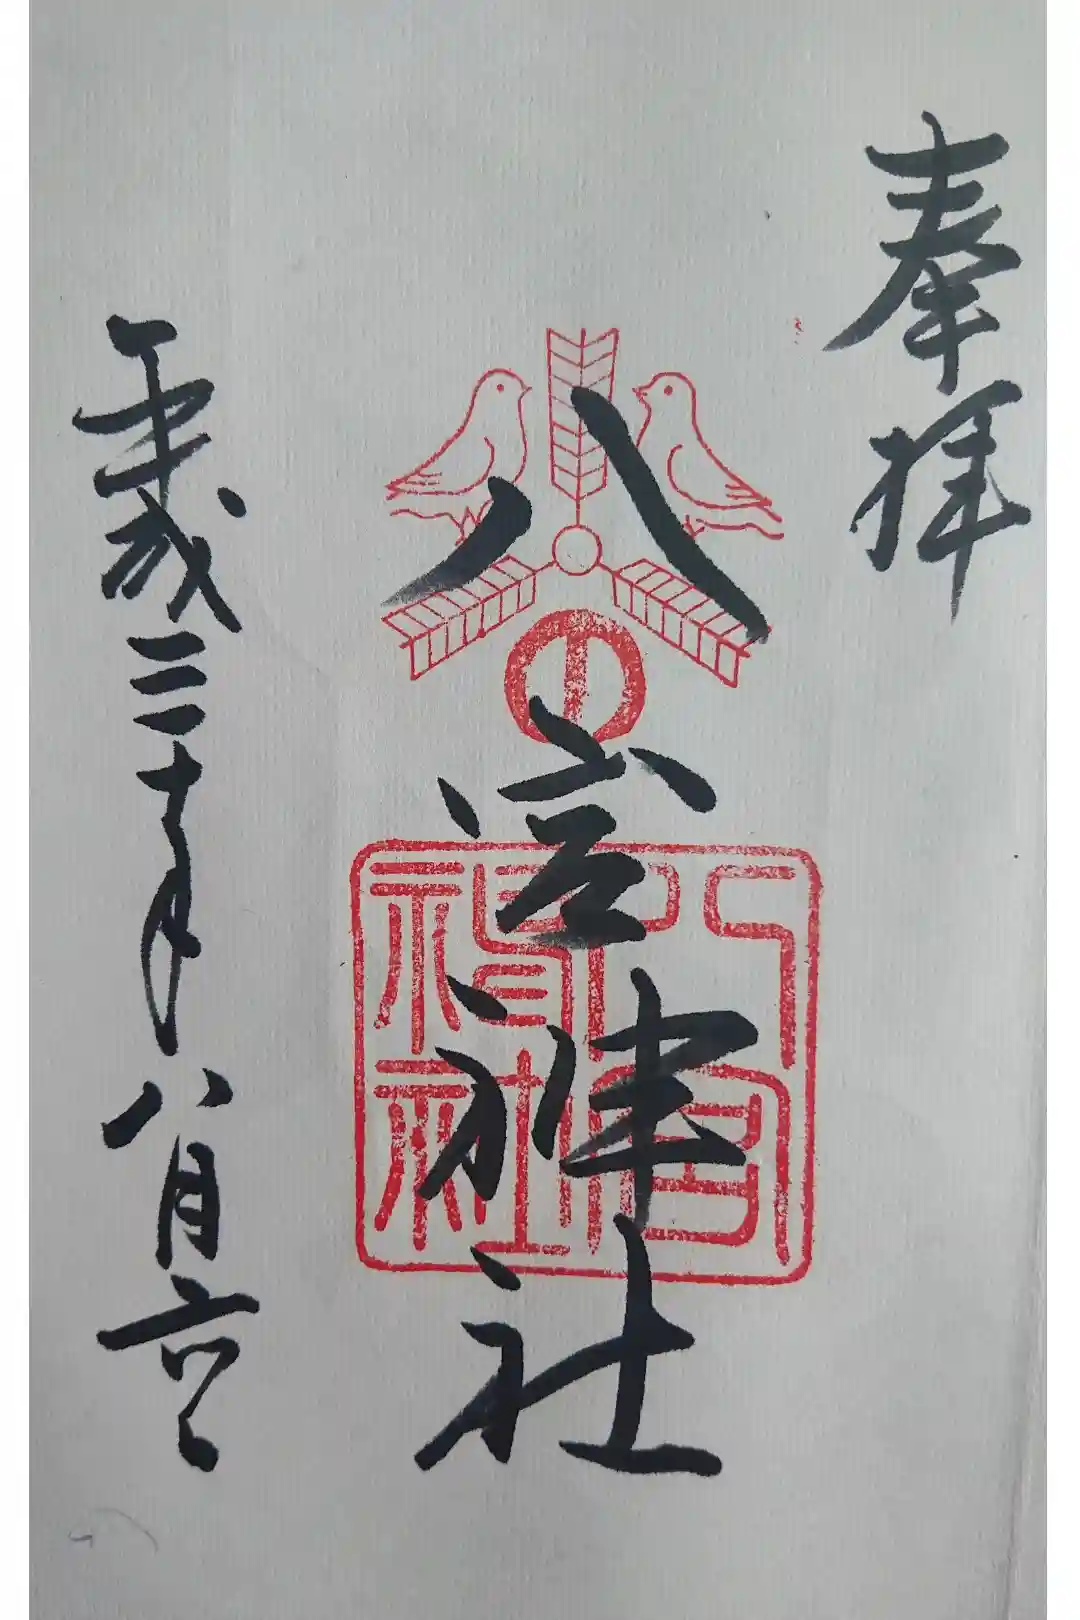 奉拝
八宮神社
平成三十年八月六日
八宮
神社